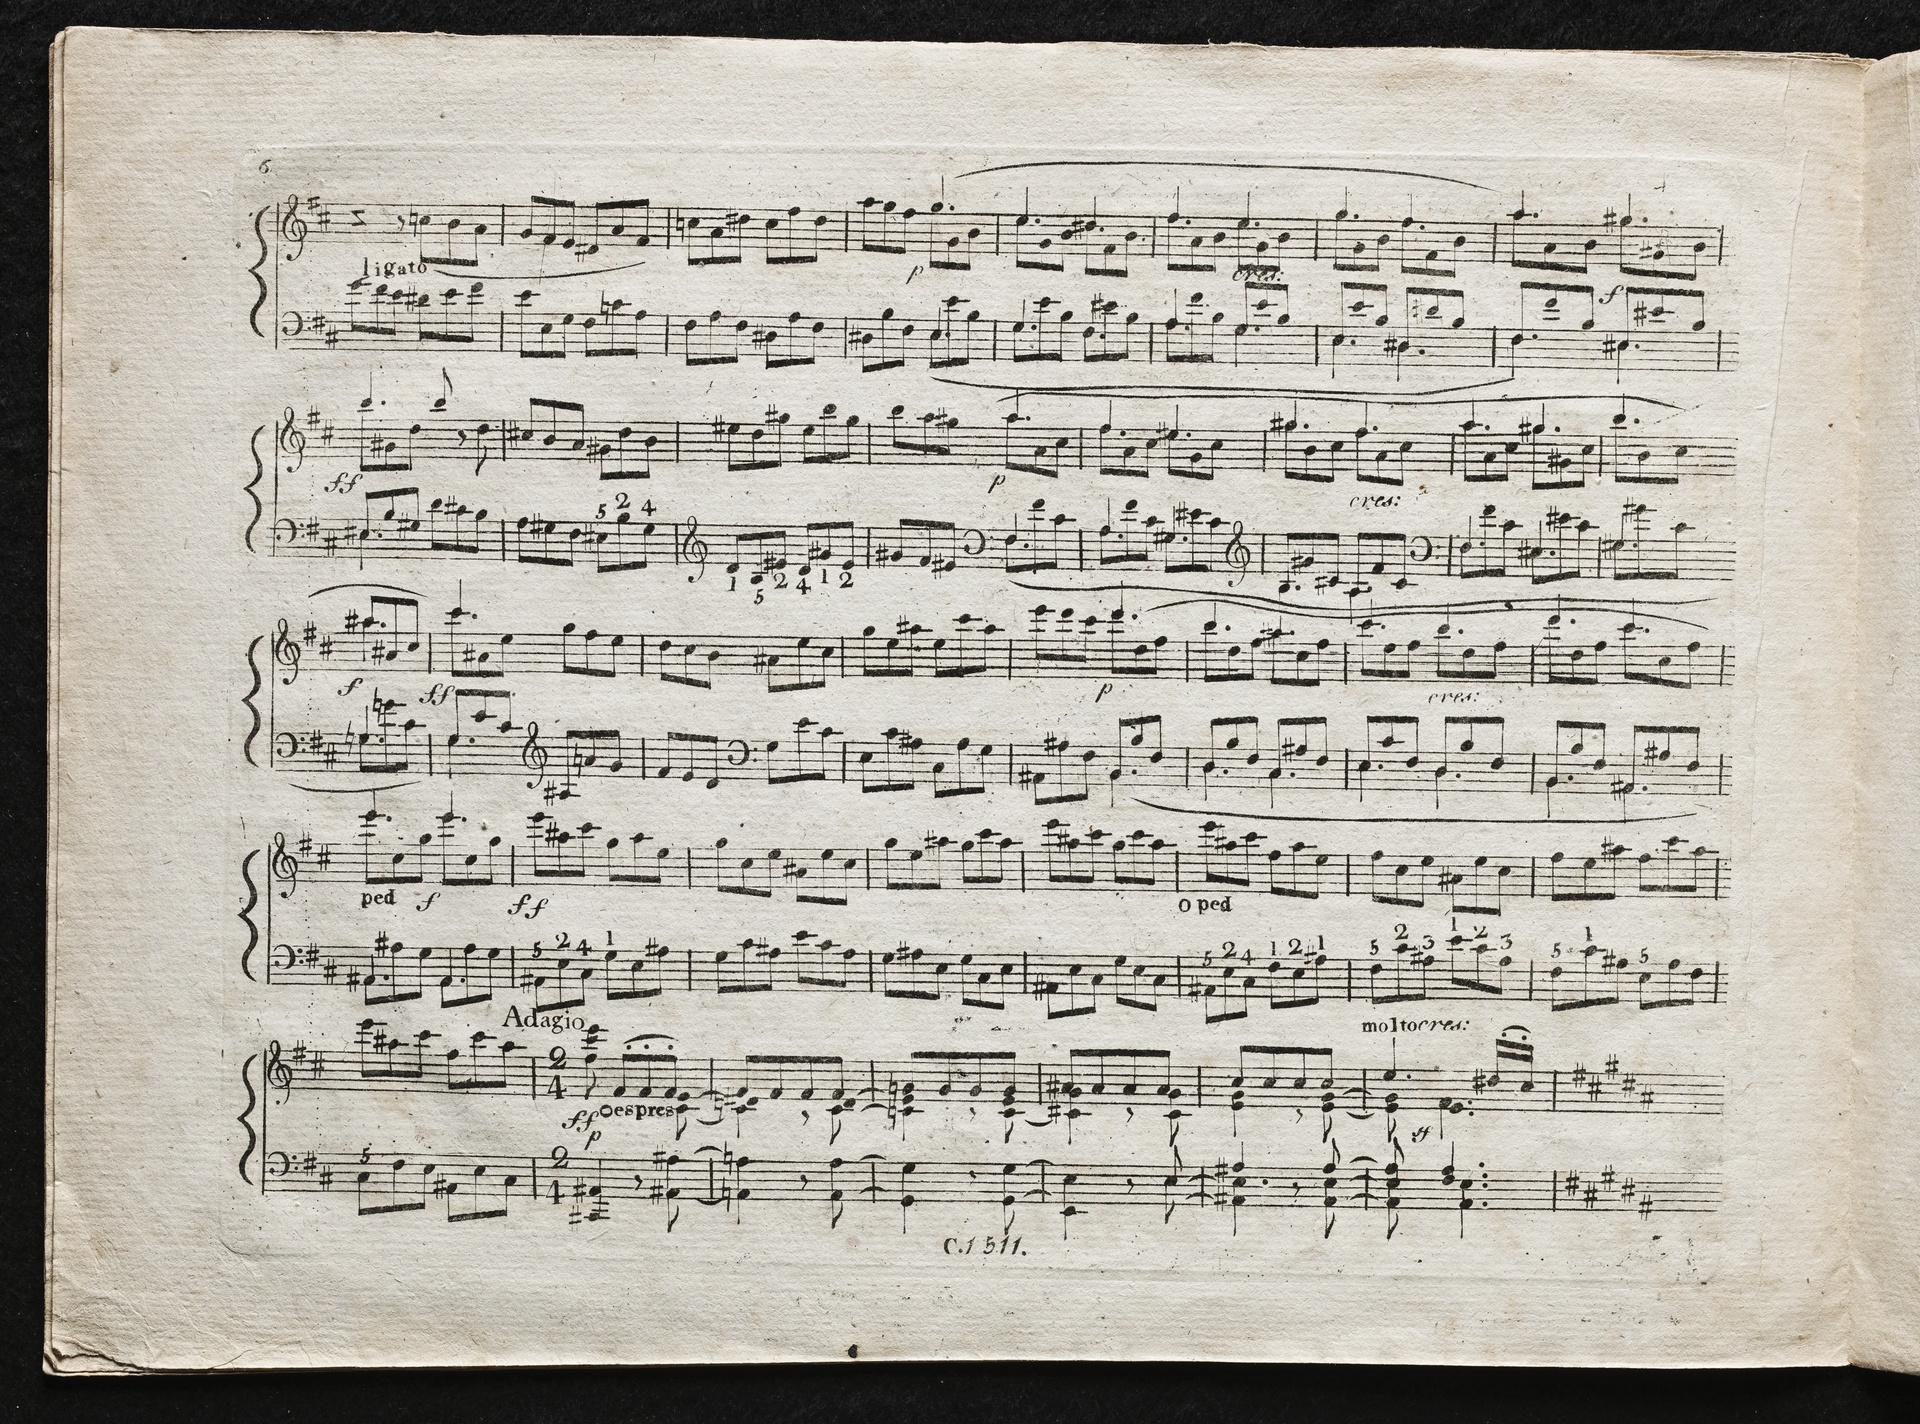 6
ligato
p cres: f
ff p cres:
5 2 4
1 5 2 4 1 2
f ff p cres:
ped f ff O ped
5 2 4 1 5 2 4 1 2 1 5 2 3 1 2 3 5 1 5
Adagio molto cres:
2 4
ff p espres ff
5 2 4
C.1511.